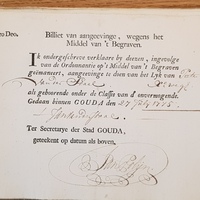 ro Deo.
Billiet van aangeevinge, wegens het
Middel van 't Begraven.
Ik ondergeschreve verklaare by deezen, ingevolge
van de Ordonnantie op 't Middel van 't Begraven
geëmaneert, aangeevinge te doen van het Lyk van
als gehoorende onder de Classe der onvermogende.
Gedaan binnen GOUDA, den 27 July 1775
Ter Secretarye der Stad GOUDA,
geteekent op datum als boven,